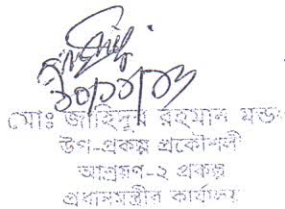 মোঃ জাহিদুর রহমান মন্ডল
উপ-প্রকল্প প্রকৌশলী
আশ্রয়ণ-২ প্রকল্প
প্রধানমন্ত্রীর কার্যালয়